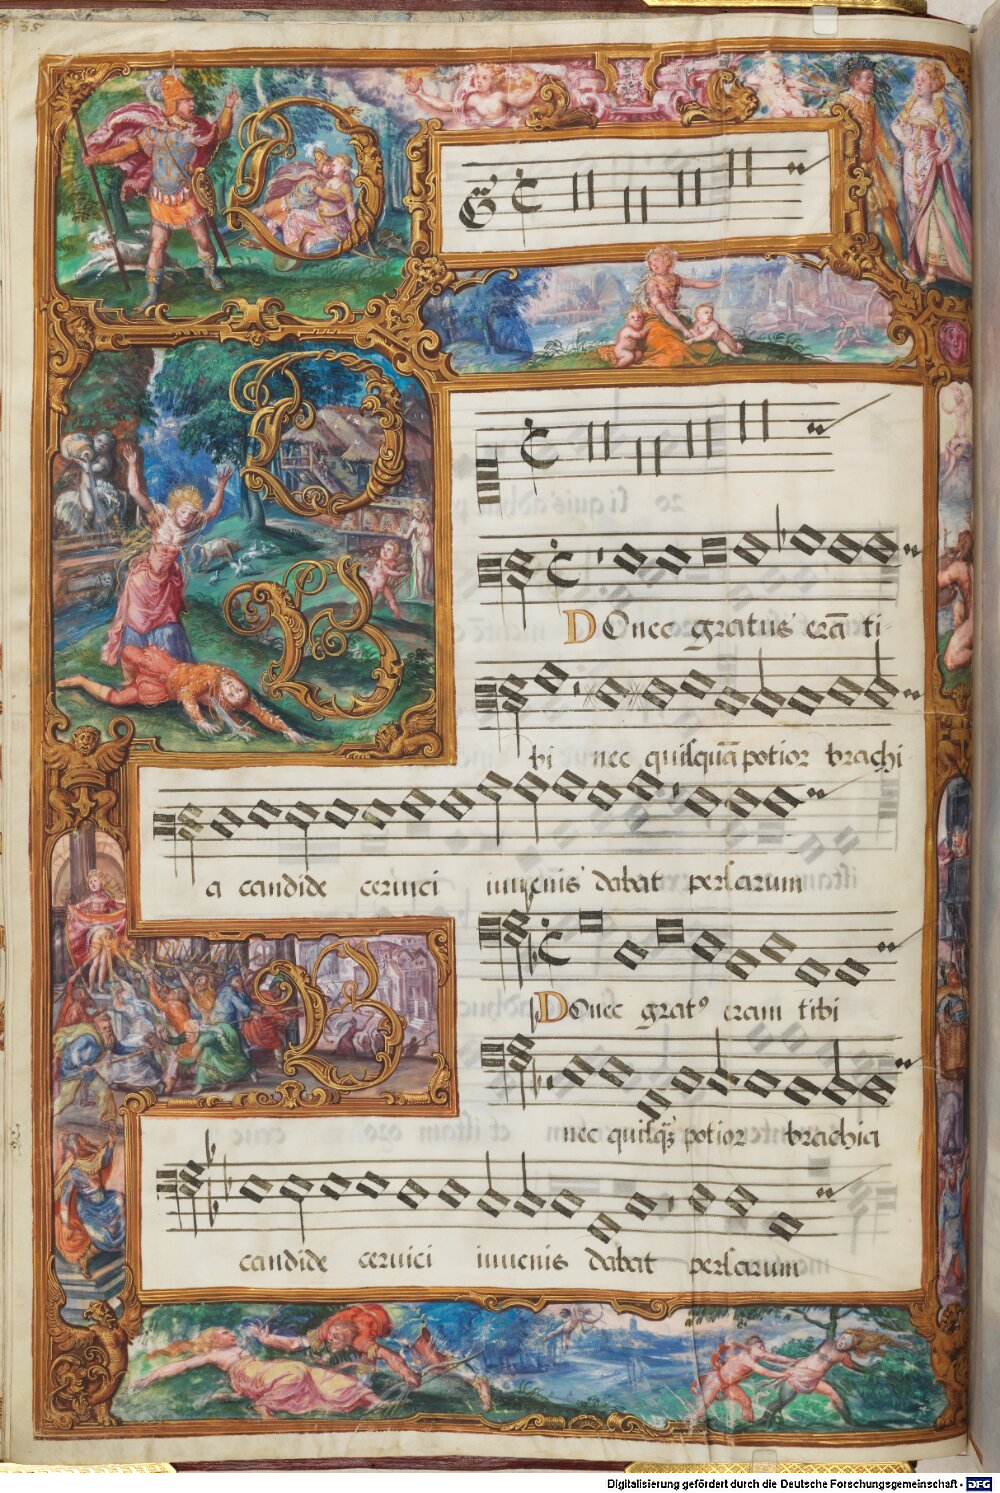 35
DOnec gratus erā ti
bi nec quisquā potior brachi
a candide ceruici iuuenis dabat persarum
Donec grat⁹ eram tibi
nec quisq̃ potior brachia
candide ceruici iuuenis dabat persarum
Digitalisierung gefördert durch die Deutsche Forschungsgemeinschaft - DFG